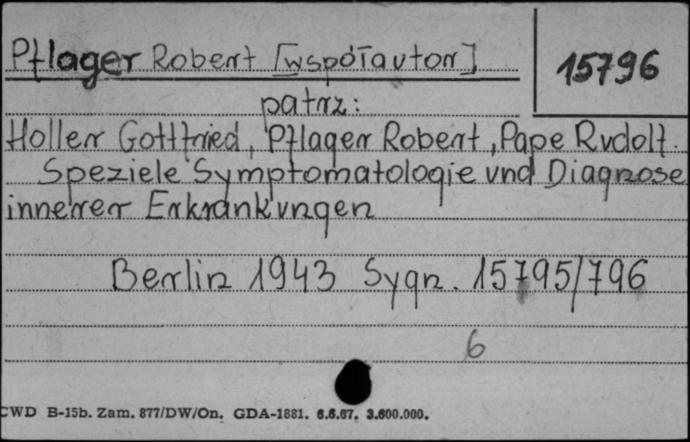 Pflager Robert [współautor]
15796
patrz:
Holler Gottfried, Pflager Robert, Pape Rudolf.
Speziele Symptomatologie und Diagnose
innerer Erkrankungen
Berlin 1943 Sygn. 15795/796
6
CWD B-15b. Zam. 877/DW/On. GDA-1881. 6.6.67. 3.600.000.